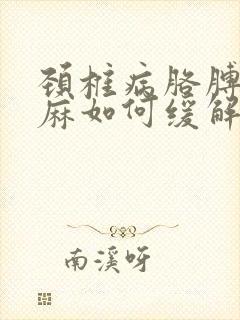 颈椎病胳膊
麻如何缓解
南溪呀